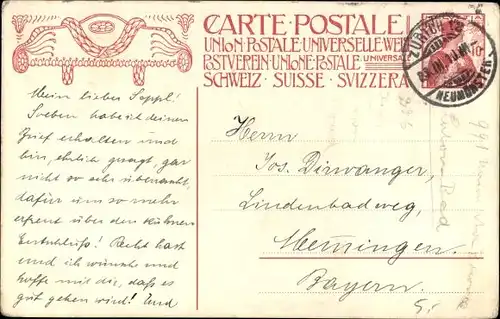 CARTE POSTALE
UNION POSTALE UNIVERSELLE WEL
POSTVEREIN UNIONE POSTALE UNIVERSALE
SCHWEIZ · SUISSE · SVIZZERA
10
ZÜRICH 12
NEUMÜNSTER
Mein lieber Seppl!
Soeben habe ich deinen
Brief erhalten und
bin, ehrlich gesagt, gar
nicht so sehr überrascht,
dafür um so mehr
erfreut über den kühnen
Entschluß! Recht hast
und ich wünsche und
hoffe mit dir, daß es
gut gehen wird! Und
Herrn
Jos. Dirwanger,
Lindenbadweg,
Memmingen.
Bayern.
5.-